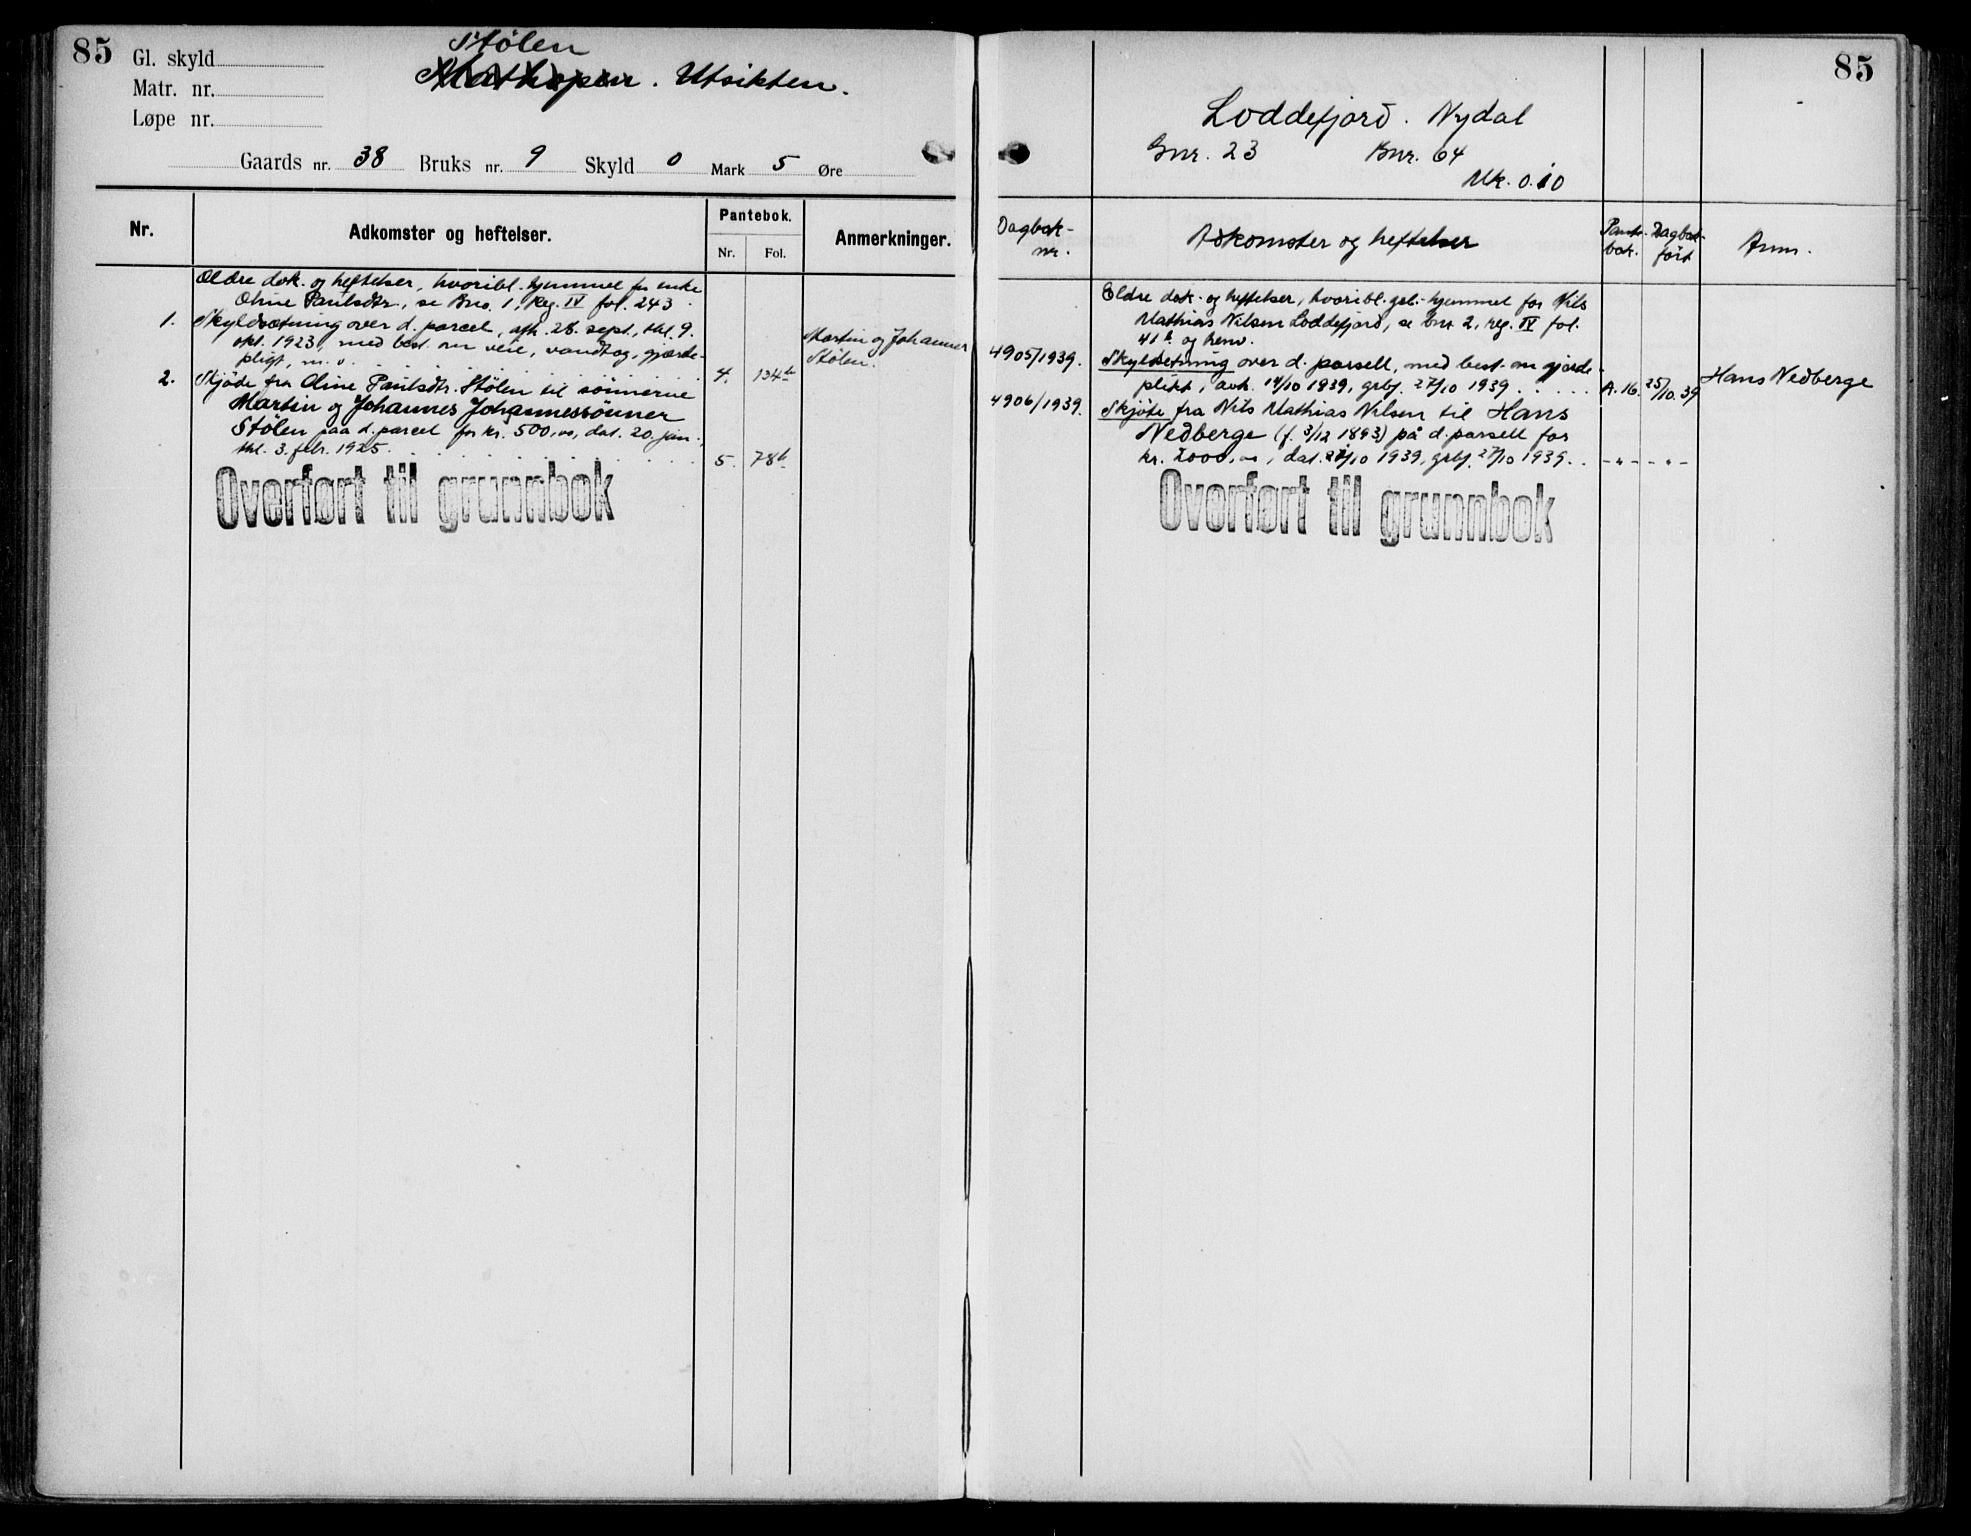 85
Gl. skyld
Matr. nr.
Løpe nr.
Stølen
Mathopen. Utsikten.
Gaards nr. 38 Bruks nr. 9 Skyld 0 Mark 5 Øre
Nr.
Adkomster og heftelser.
Pantebok.
Nr. Fol.
Anmerkninger.
Ældre dok. og heftelser, hvoribl. hjemmel for enke
Oline Paulsdtr., se Bno. 1, Reg. IV fol. 243.
1. Skyldsætning over d. parcel, afh. 28. sept., thl. 9.
okt. 1923, med best. om veie, vandtag, gjærde-
pligt, m. v. 4. 134b
Martin og Johannes
Stølen.
2. Skjøde fra Oline Paulsdtr. Stølen til sønnerne
Martin og Johannes Johannessønner
Stølen paa d. parcel for kr. 500,00, dat. 20. jan.,
thl. 3. febr. 1925. 5. 78b
Overført til grunnbok
85
Loddefjord. Nydal
Gnr. 23 Bnr. 64
Mk. 0.10
Dagbok-
nr.
Adkomster og heftelser
Pante-
bok.
Dagbok-
ført
Anm.
Eldre dok. og heftelser, hvoribl. gel. hjemmel for Nils
Mathias Nilsen Loddefjord, se bnr 2, reg. IV fol.
41b og henv.
4905/1939. Skyldsetning over d. parsell, med best. om gjerde-
plikt, avh. 14/10 1939, grbf. 27/10 1939 A. 16. 25/10. 39 Hans Nedberge
4906/1939. Skjøte fra Nils Mathias Nilsen til Hans
Nedberge (f. 3/12 1893) på d. parsell for
kr. 2000,00, dat. 21/10 1939, grbf. 27/10 1939. - " - - " -
Overført til grunnbok